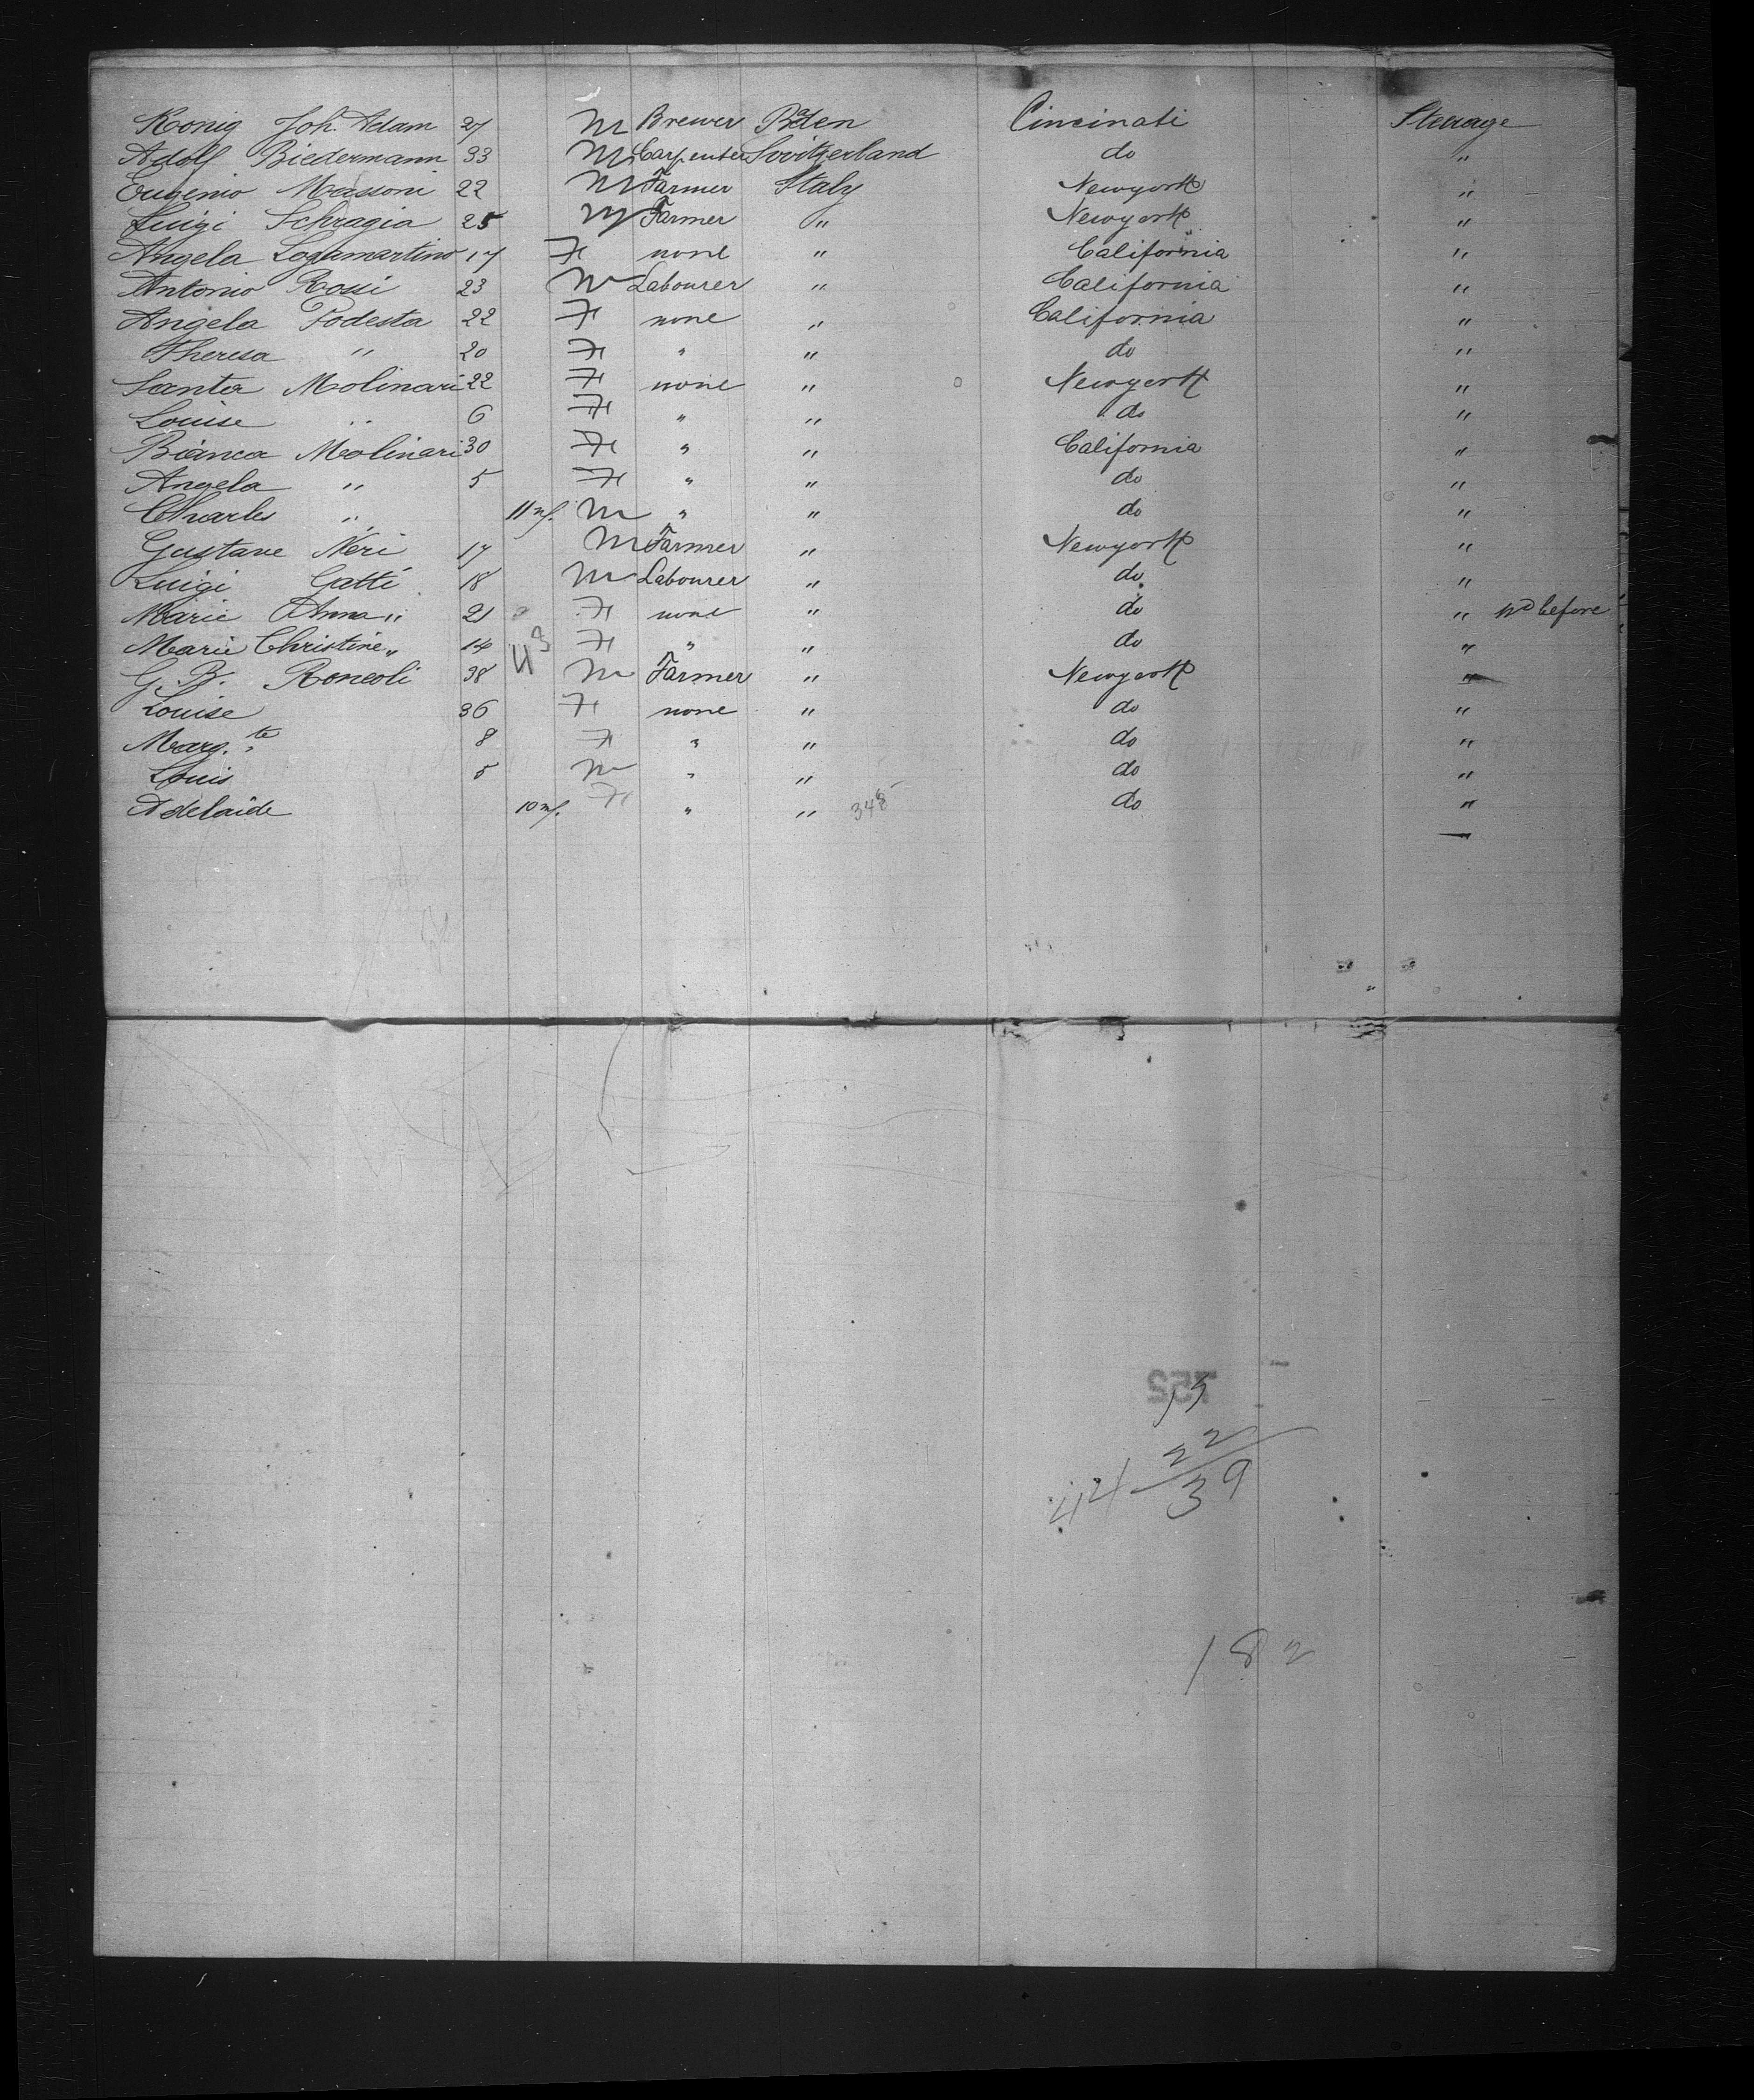 Konig Joh. Adam 27 M Brewer Baden Cincinati Steerage
Adolf Biedermann 33 M Carpenter Switzerland do "
Eugenio Massoni 22 M Farmer Italy Newyork "
Luigi Schragia 25 M Farmer " Newyork "
Angela Logamartino 17 F none " California "
Antonio Rossi 23 M Labourer " California "
Angela Podesta 22 F none " California "
Theresa " 20 F " " do "
Santa Molinari 22 F none " Newyork "
Louise " 6 F " " do "
Bianca Molinari 30 F " " California "
Angela " 5 F " " do "
Charles " 11 m/. M " " do "
Gustave Neri 17 M Farmer " Newyork "
Luigi Gatti 18 M Labourer " do "
Marie Anna " 21 F none " do " before
Marie Christine " 14 F " " do "
G. B. Roncoli 38 M Farmer " Newyork "
Louise 36 F none " do "
Marg.te 8 F " " do "
Louis 5 M " " do "
Adelaide 10 m/. F " " do "
125
22
44 39
182